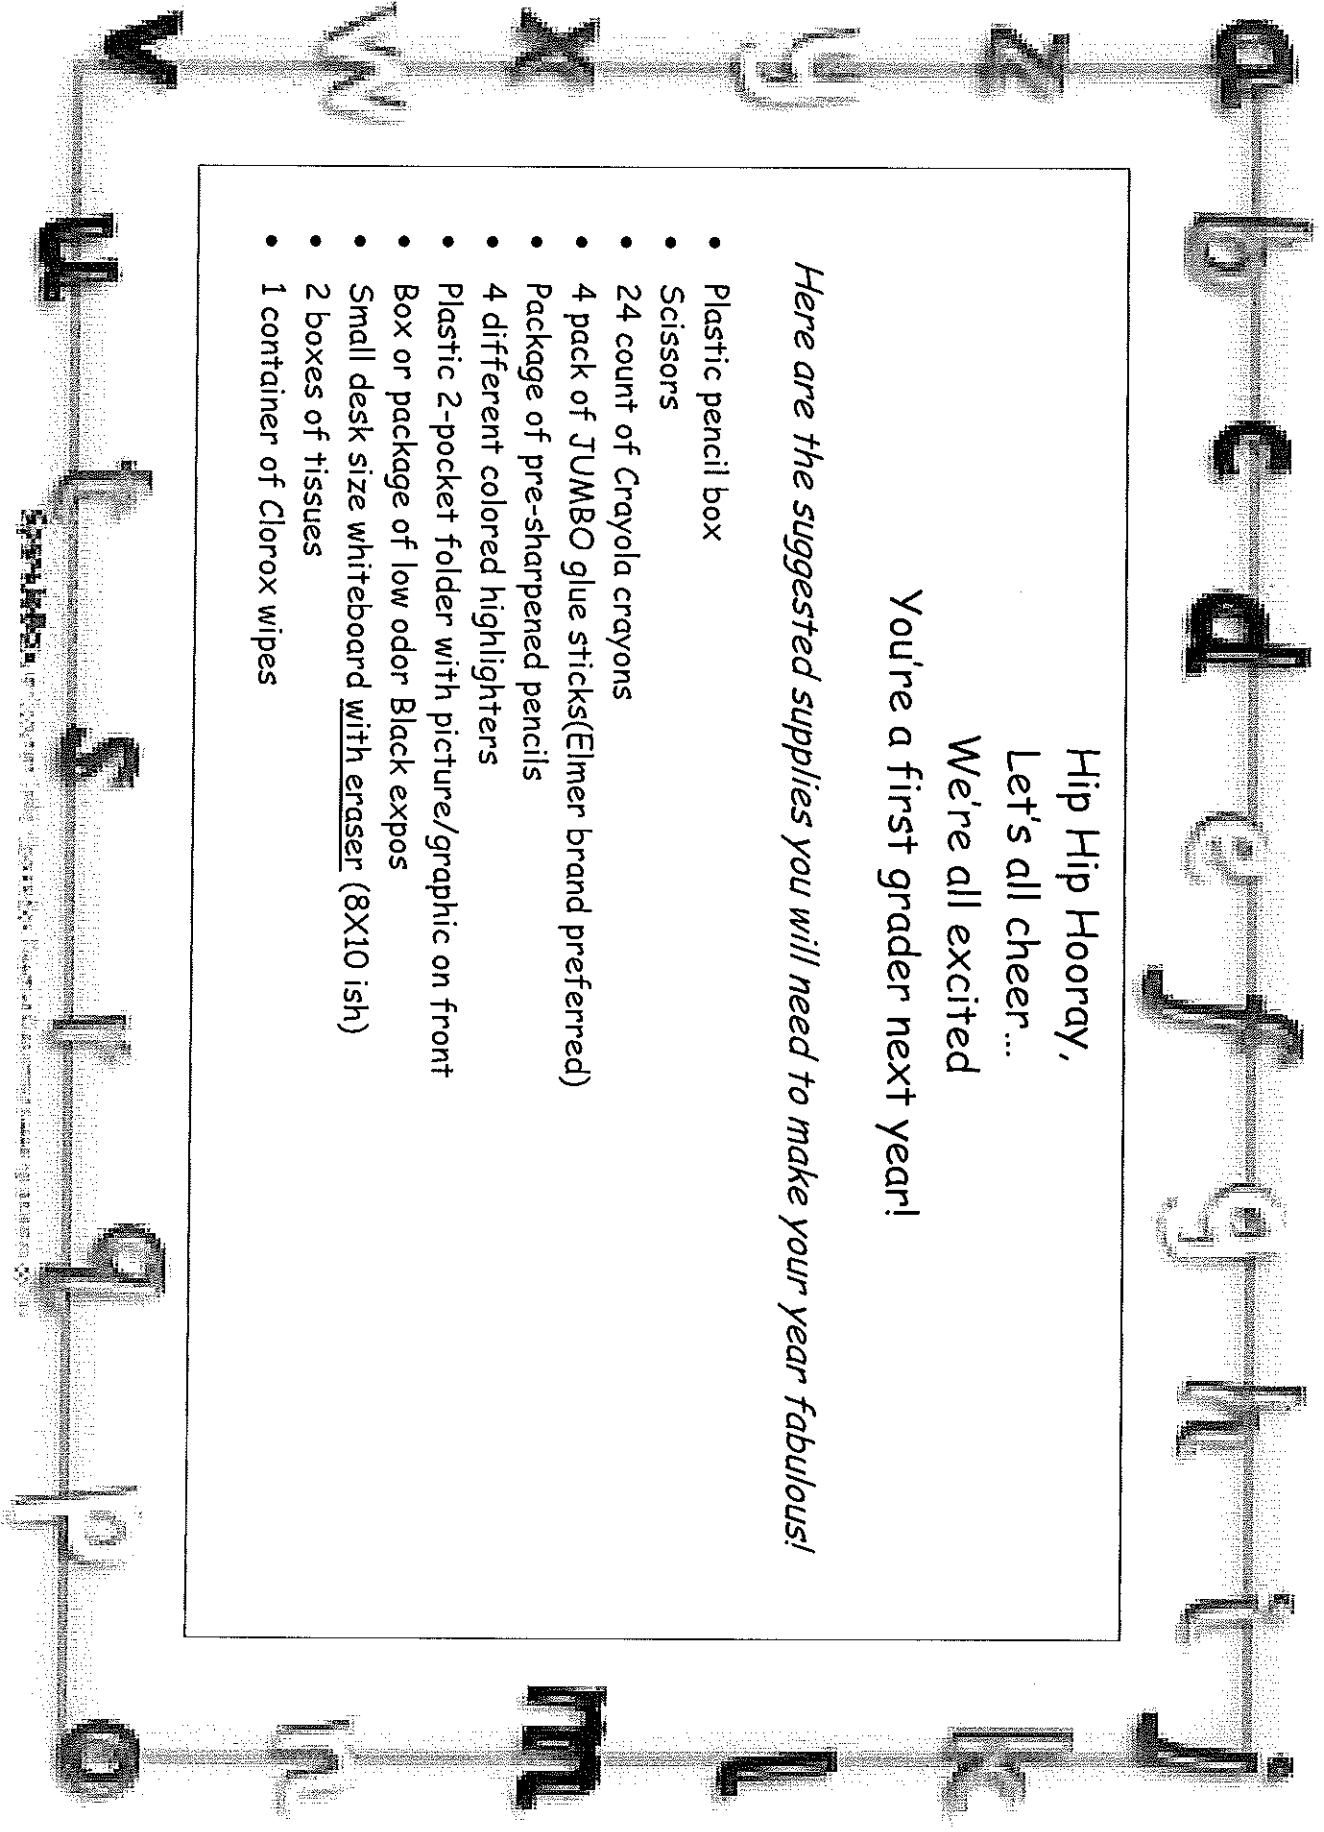 Hip Hip Hooray,
Let's all cheer...
We're all excited
You're a first grader next year!
Here are the suggested supplies you will need to make your year fabulous!
• Plastic pencil box
• Scissors
• 24 count of Crayola crayons
• 4 pack of JUMBO glue sticks(Elmer brand preferred)
• Package of pre-sharpened pencils
• 4 different colored highlighters
• Plastic 2-pocket folder with picture/graphic on front
• Box or package of low odor Black expos
• Small desk size whiteboard with eraser (8X10 ish)
• 2 boxes of tissues
• 1 container of Clorox wipes
a b c d e f g h i j
k l m n o
p q r s t u v
w x y z